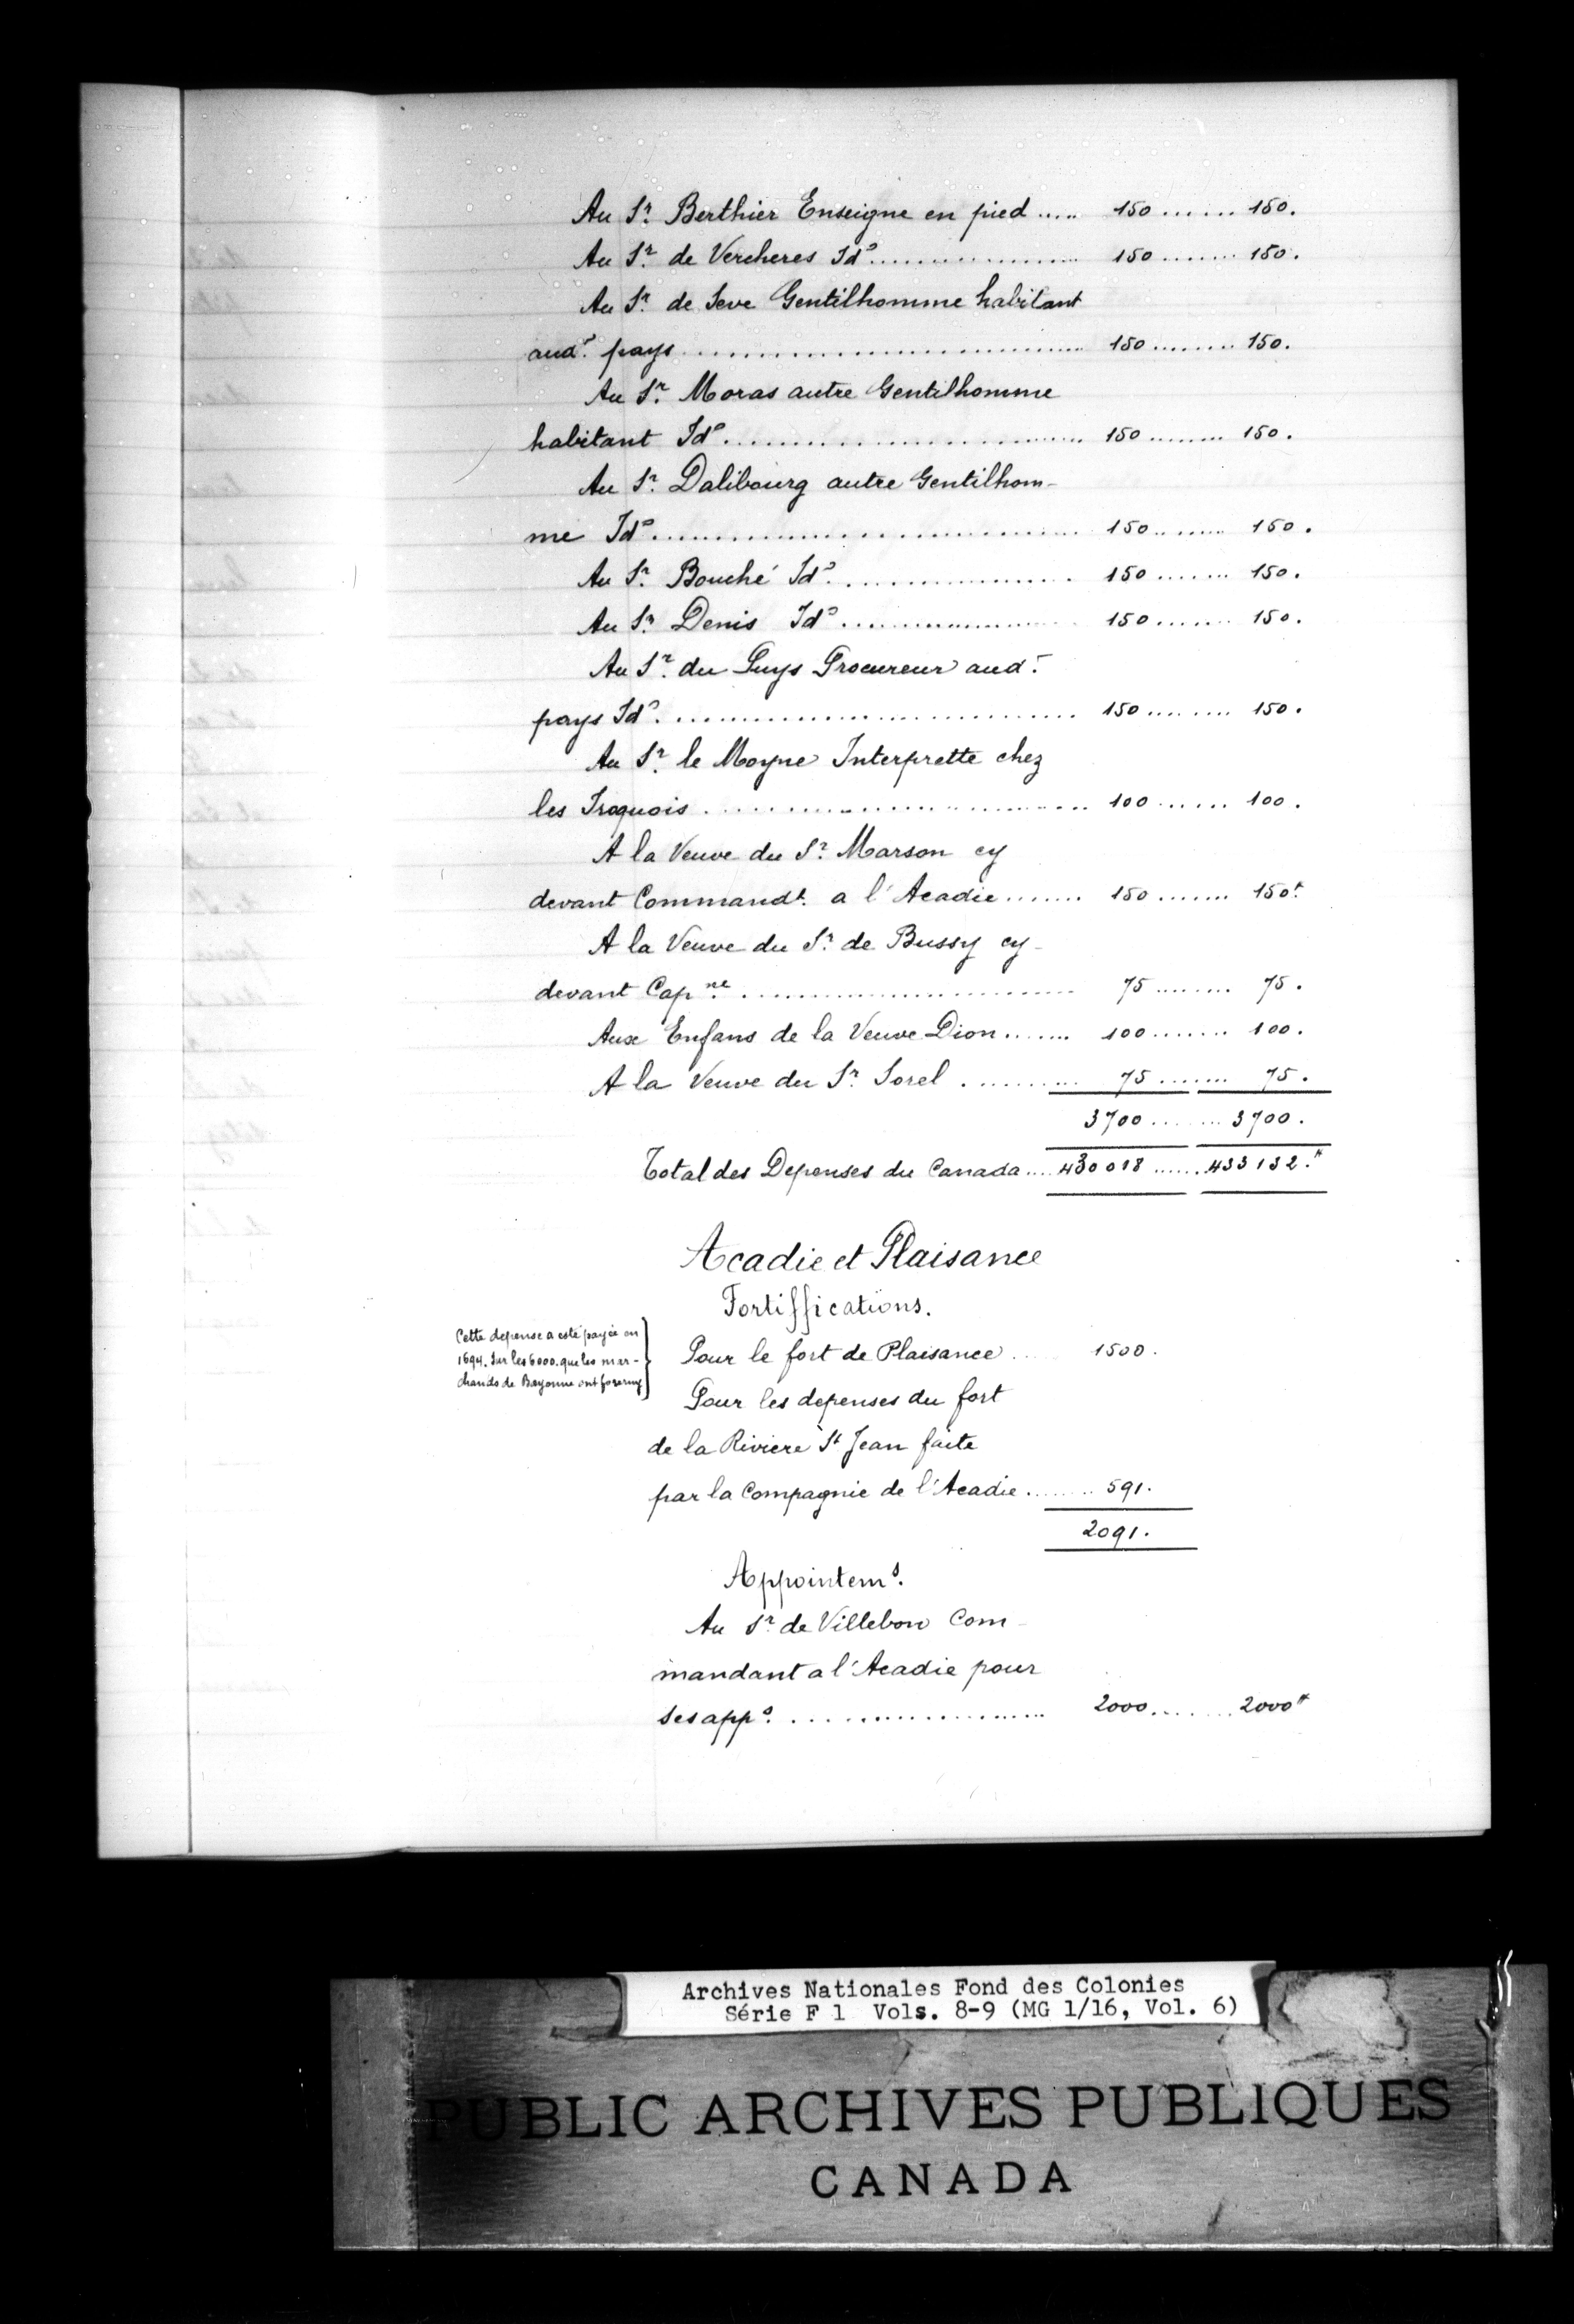 Au Sr. Berthier Enseigne en pied ..... 150 ....... 150.
Au Sr. de Vercheres Ido. ................... 150 ........ 150.
Au Sr. de Seve Gentilhomme habitant
audt. pays ............................... 150 ........ 150.
Au Sr. Moras autre Gentilhomme
habitant Ido. ............................ 150 ........ 150.
Au Sr. Dalibourg autre Gentilhom-
me Ido. ................................ 150 ........ 150.
Au Sr. Bouché Ido. .................. 150 ....... 150.
Au Sr. Denis Ido. .................. 150 ....... 150.
Au Sr. du Puys Procureur audt.
pays Ido. .............................. 150 ........ 150.
Au Sr. le Moyne Interprette chez
les Iroquois ............................ 100 ....... 100.
A la Veuve du Sr. Marson cy
devant Commandt. a l'Acadie ....... 150 ....... 150ₜ.
A la Veuve du Sr. de Bussy cy-
devant Capne. ......................... 75 ........ 75.
Aux Enfans de la Veuve Dion ....... 100 ........ 100.
A la Veuve du Sr. Sorel .......... 75 ....... 75.
3700 ........ 3700.
Total des Depenses du Canada .... 430018 ...... 433132.ₜ
Acadie et Plaisance
Fortiffications.
Cette depense a esté payée en
1694. Sur les 6000. que les mar-
chands de Bayonne ont
Pour le fort de Plaisance ... 1500.
Pour les depenses du fort
de la Riviere St Jean faite
par la Compagnie de l'Acadie ........ 591.
2091.
Appointems.
Au Sr. de Villebon Com-
mandant a l'Acadie pour
ses apps. ..................... 2000 ....... 2000ₜ
Archives Nationales Fond des Colonies
Série F 1 Vols. 8-9 (MG 1/16, Vol. 6)
PUBLIC ARCHIVES PUBLIQUES
CANADA